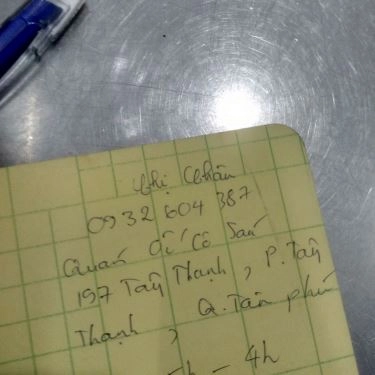 Chị Chân
0932 604 387
Quán Dì Cô Sáu
197 Tân Thạnh, P. Tân
Thạnh, Q. Tân phú
5h - 4h